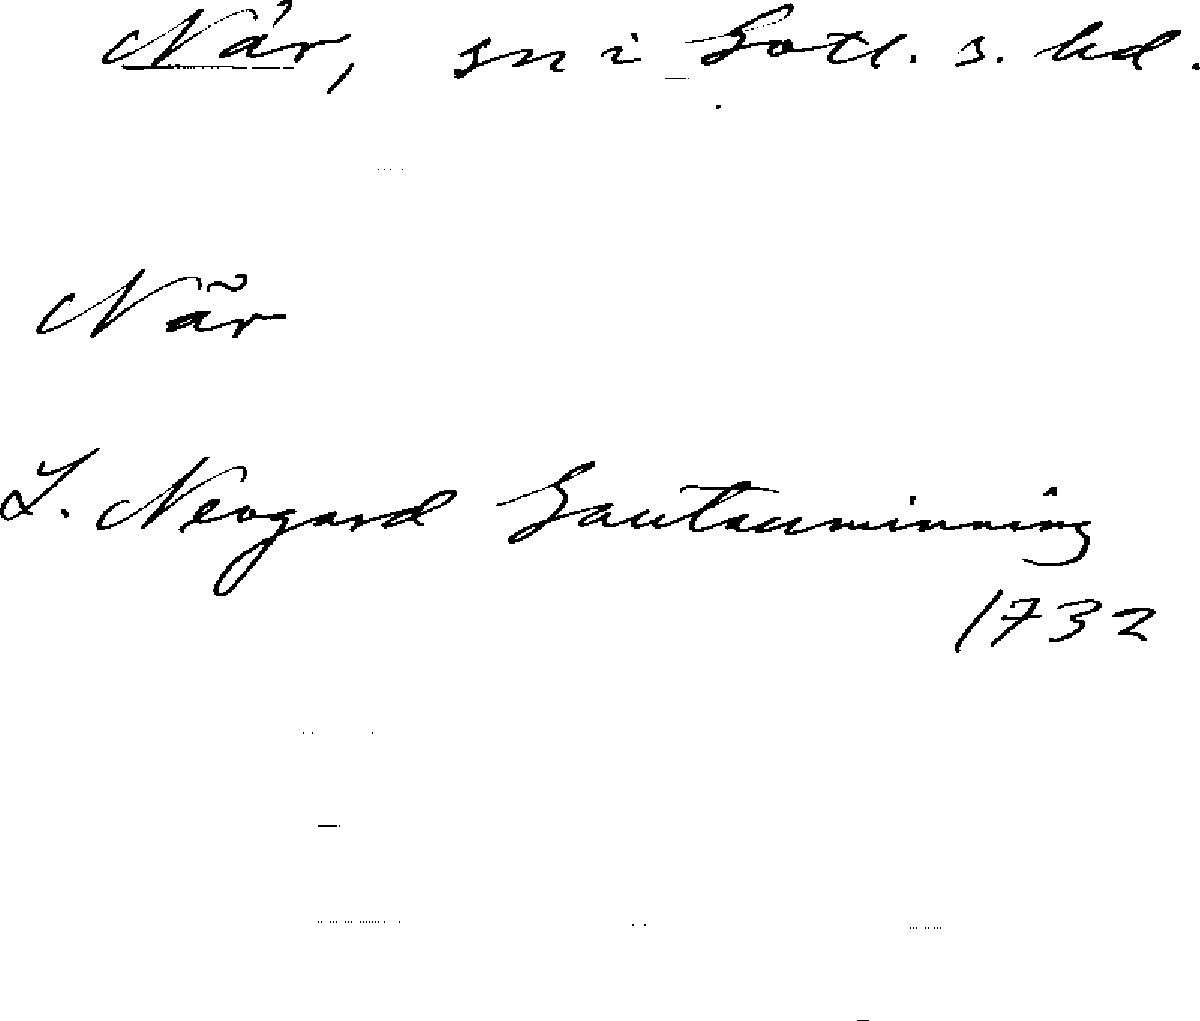 När, sn i Gotl. s. hd.
När
L. Neogard Gautauminning
1732